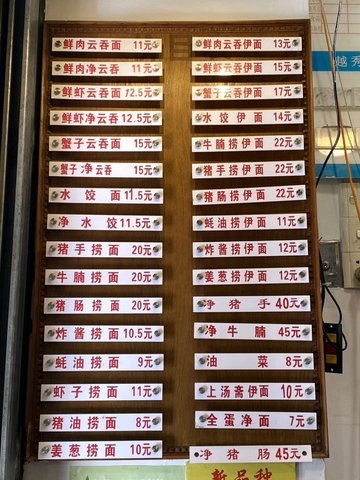 鲜肉云吞面 11元
鲜肉净云吞 11元
鲜虾云吞面 12.5元
鲜虾净云吞 12.5元
蟹子云吞面 15元
蟹子净云吞 15元
水饺面 11.5元
净水饺 11.5元
猪手捞面 20元
牛腩捞面 20元
猪肠捞面 20元
炸酱捞面 10.5元
蚝油捞面 9元
虾子捞面 11元
猪油捞面 8元
姜葱捞面 10元
鲜肉云吞伊面 13元
鲜虾云吞伊面 15元
蟹子云吞伊面 17元
水饺伊面 14元
牛腩捞伊面 22元
猪手捞伊面 22元
猪肠捞伊面 22元
蚝油捞伊面 11元
炸酱捞伊面 12元
姜葱捞伊面 12元
净猪手 40元
净牛腩 45元
油菜 8元
上汤斋伊面 10元
全蛋净面 7元
净猪肠 45元
新品种
越秀